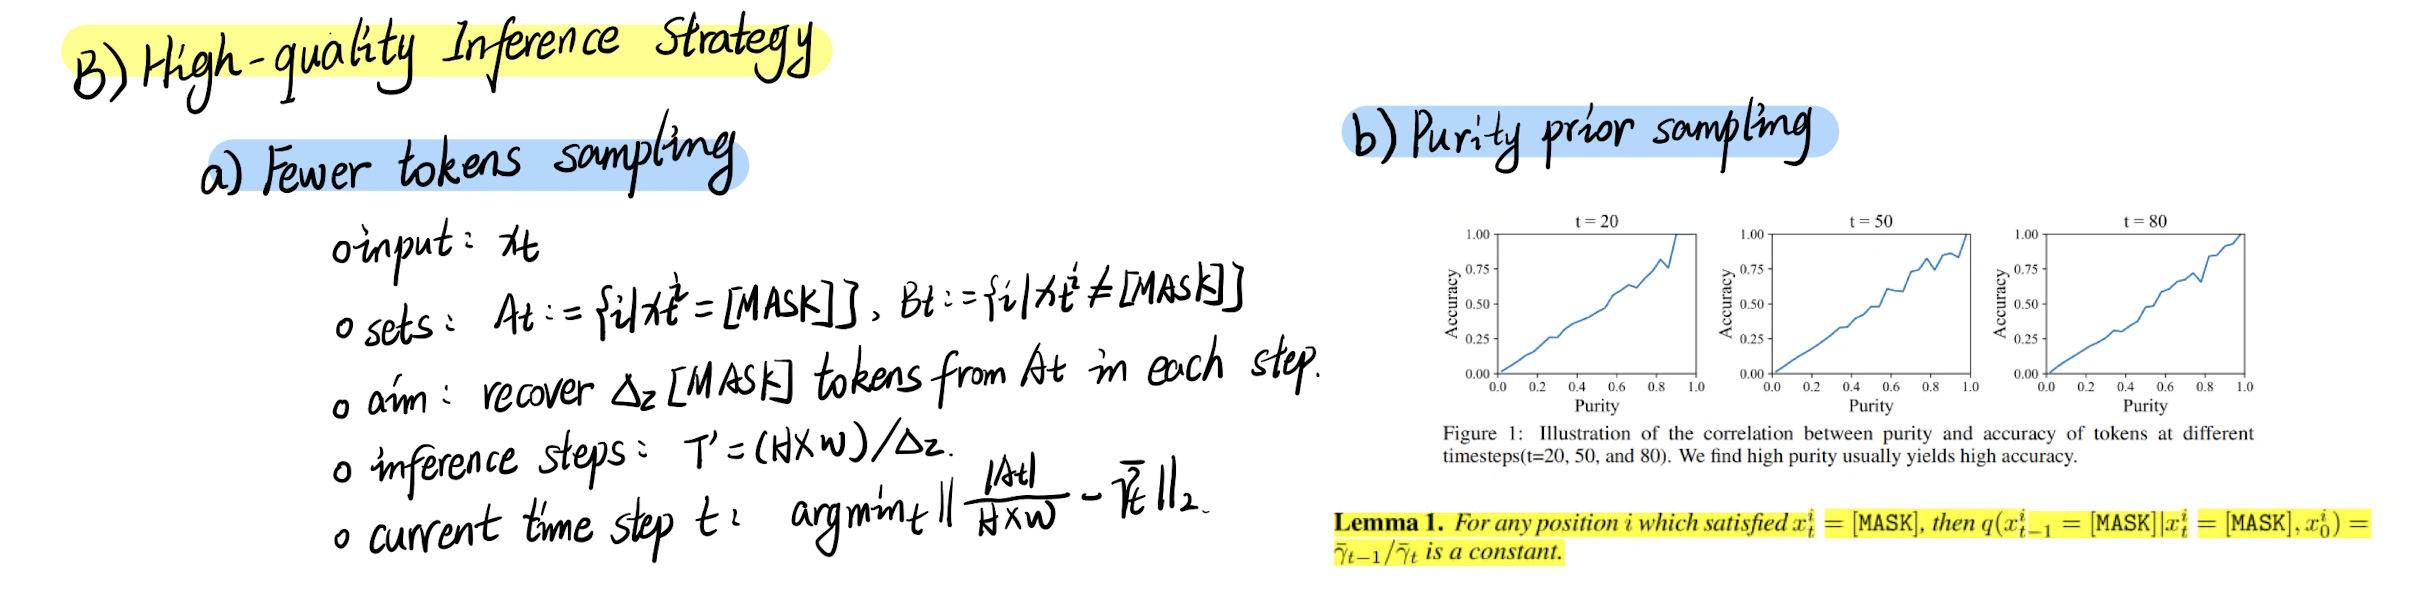 B) High-quality Inference Strategy
a) Fewer tokens sampling
o input: xt
o sets: At := {i|xt^i = [MASK]}, Bt := {i|xt^i ≠ [MASK]}
o aim: recover Δz [MASK] tokens from At in each step.
o inference steps: T' = (H×W)/Δz.
o current time step t: argmin_t || |At| / H×W - γ̄t ||2.
b) Purity prior sampling
t = 20
1.00
0.75
0.50
0.25
0.00
Accuracy
0.0 0.2 0.4 0.6 0.8 1.0
Purity
t = 50
1.00
0.75
0.50
0.25
0.00
Accuracy
0.0 0.2 0.4 0.6 0.8 1.0
Purity
t = 80
1.00
0.75
0.50
0.25
0.00
Accuracy
0.0 0.2 0.4 0.6 0.8 1.0
Purity
Figure 1: Illustration of the correlation between purity and accuracy of tokens at different
timesteps(t=20, 50, and 80). We find high purity usually yields high accuracy.
Lemma 1. For any position i which satisfied x_t^i = [MASK], then q(x_{t-1}^i = [MASK]|x_t^i = [MASK], x_0^i) =
γ̄_{t-1}/γ̄_t is a constant.